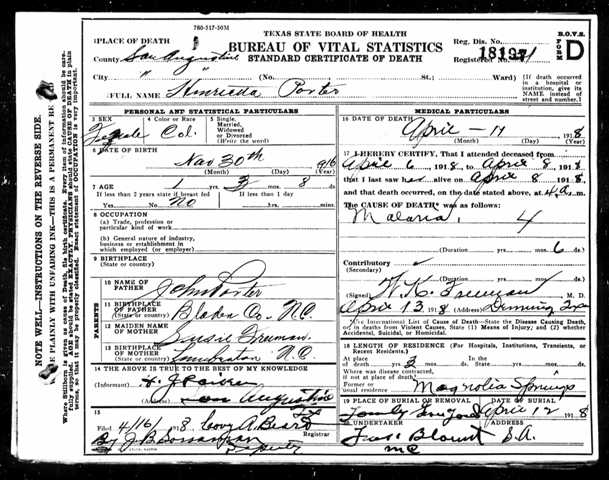 780-517-50M
TEXAS STATE BOARD OF HEALTH
BUREAU OF VITAL STATISTICS
STANDARD CERTIFICATE OF DEATH
B.O.V.S.
FORM D
Reg. Dis. No.
Register No. 18197
1 PLACE OF DEATH
County San Augustine
City " " (No. St.; Ward)
[If death occurred in a hospital or institution, give its NAME instead of street and number.]
2 FULL NAME Henrietta Porter
PERSONAL AND STATISTICAL PARTICULARS
3 SEX Female
4 Color or Race Col.
5 Single, Married, Widowed or Divorced (Write the word)
6 DATE OF BIRTH
Nov 30th 1916
(Month) (Day) (Year)
7 AGE 1 3 8 ds.
If less than 2 years if breast fed
If less than 1 day
Yes. No NO hrs. mins.
8 OCCUPATION
(a) Trade, profession or particular kind of work
(b) General nature of industry, business or establishment in which employed (or employer)
9 BIRTHPLACE
(State or country)
PARENTS
10 NAME OF FATHER John Porter
11 BIRTHPLACE OF FATHER (State or country) Bladen Co. N.C.
12 MAIDEN NAME OF MOTHER Susie Freeman
13 BIRTHPLACE OF MOTHER (State or country) N.C.
14 THE ABOVE IS TRUE TO THE BEST OF MY KNOWLEDGE
(Informant)
(Address) San Augustine Tx
15
Filed 4/16/ 1918 Covy A. Beard
Registrar
By J B
Deputy
MEDICAL PARTICULARS
16 DATE OF DEATH
April - 11 1918
(Month) (Day) (Year)
17 I HEREBY CERTIFY, That I attended deceased from
April 6 1918, to April 8 1918,
that I saw her alive on April 8 1918,
and that death occurred, on the date stated above, at 4 a. m.
The CAUSE OF DEATH was as follows:
Malaria, 4
(Duration) yrs. mos. 6 ds.
Contributory
(Secondary)
(Duration) yrs. mos. ds.
(Signed) W. K. Freeman, M. D.
April 13 1918 (Address) Denning Tex
*Use International List of Cause of Death—State the Disease Causing Death, or in deaths from Violent Causes, State (1) Means of Injury; and (2) whether Accidental, Suicidal, or Homicidal.
18 LENGTH OF RESIDENCE (For Hospitals, Institutions, Transients, or Recent Residents.)
At place of death yrs. 3 mos. ds. In the State yrs. mos. ds.
Where was disease contracted, if not at place of death?
Former or usual residence Magnolia Springs
19 PLACE OF BURIAL OR REMOVAL
DATE OF BURIAL
April 12 1918
20 UNDERTAKER
ADDRESS
Blount S.A.
NOTE WELL—INSTRUCTIONS ON THE REVERSE SIDE.
BE PLAINLY WITH UNFADING INK—THIS IS A PERMANENT RE